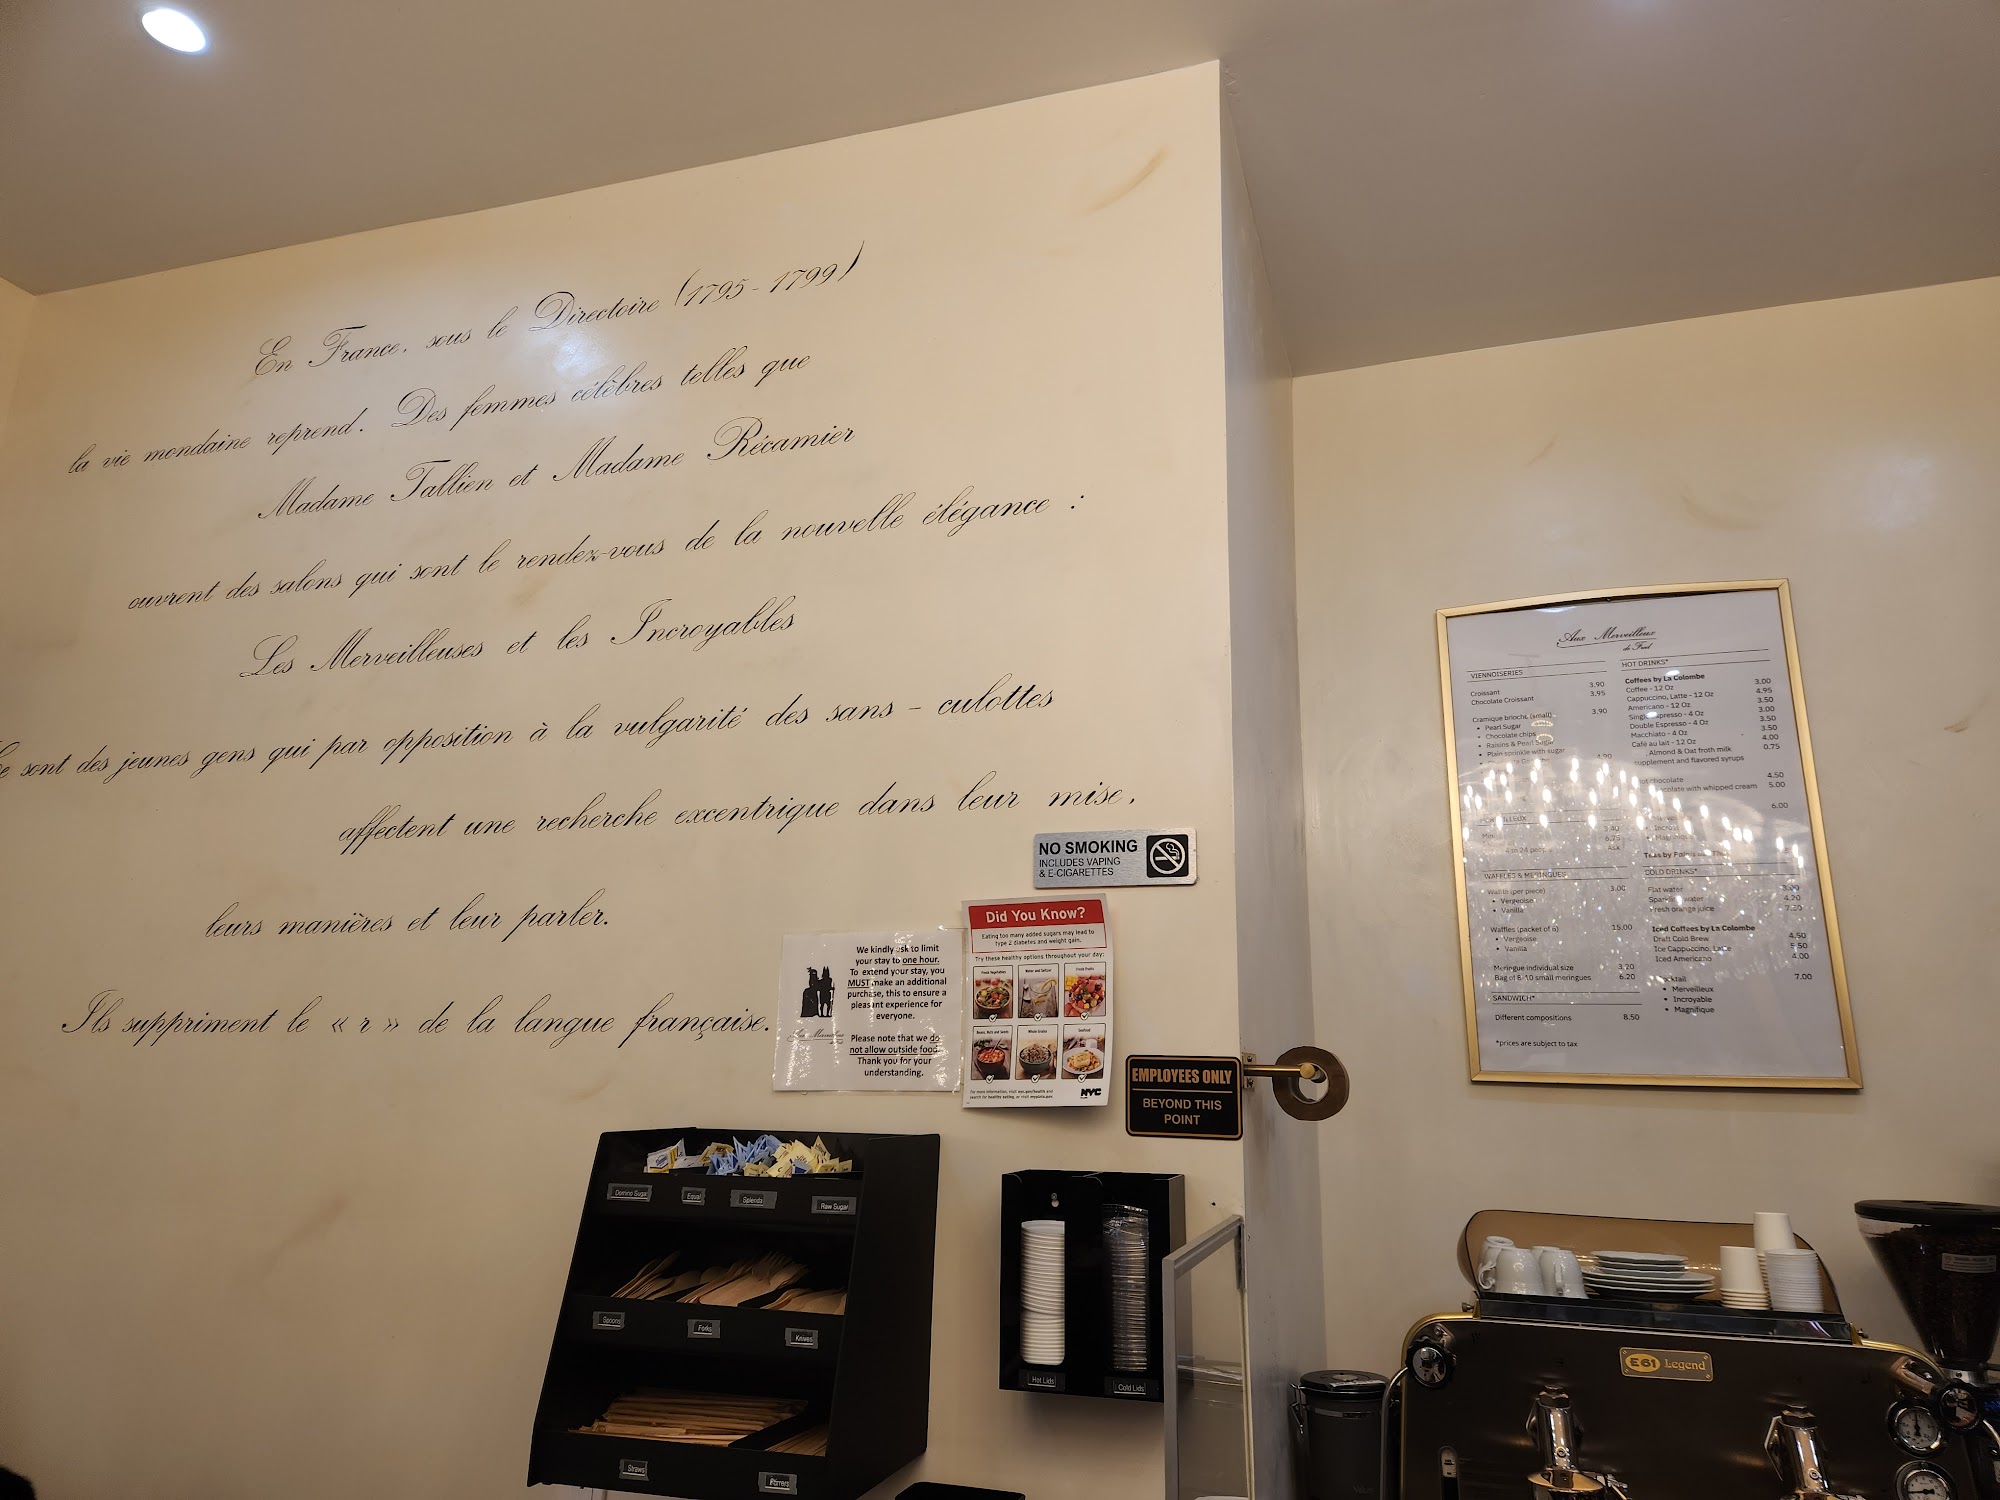 En France, sous le Directoire (1795 - 1799)
la vie mondaine reprend. Des femmes célèbres telles que
Madame Tallien et Madame Récamier
ouvrent des salons qui sont le rendez-vous de la nouvelle élégance :
Les Merveilleuses et les Incroyables
sont des jeunes gens qui par opposition à la vulgarité des sans - culottes
affectent une recherche excentrique dans leur mise,
leurs manières et leur parler.
Ils suppriment le « r » de la langue française.
NO SMOKING
INCLUDES VAPING
& E-CIGARETTES
We kindly ask to limit
your stay to one hour.
To extend your stay, you
MUST make an additional
purchase, this to ensure a
pleasant experience for
everyone.
Please note that we do
not allow outside food.
Thank you for your
understanding.
Did You Know?
Eating too many added sugars may lead to
type 2 diabetes and weight gain.
Try these healthy options throughout your day:
Fresh Vegetables
Water and Seltzer
Fresh Fruits
Beans, Nuts and Seeds
Whole Grains
Seafood
NYC
EMPLOYEES ONLY
BEYOND THIS
POINT
Domino Sugar
Equal
Splenda
Raw Sugar
Spoons
Forks
Knives
Straws
Stirrers
Hot Lids
Cold Lids
Aux Merveilleux
de Fred
VIENNOISERIES
Croissant 3.90
Chocolate Croissant 3.95
Cramique brioche (small) 3.90
• Pearl Sugar
• Chocolate chips
• Raisins & Pearl Sugar
• Plain sprinkle with sugar
4.90
3.40
6.75
WAFFLES & MERINGUES
Waffle (per piece) 3.00
• Vergeoise
• Vanilla
Waffles (packet of 6) 15.00
• Vergeoise
• Vanilla
Meringue individual size 3.20
Bag of 8-10 small meringues 6.20
SANDWICH*
Different compositions 8.50
*prices are subject to tax
HOT DRINKS*
Coffees by La Colombe
Coffee - 12 Oz 3.00
Cappuccino, Latte - 12 Oz 4.95
Americano - 12 Oz 3.50
Single Espresso - 4 Oz 3.00
Double Espresso - 4 Oz 3.50
Macchiato - 4 Oz 3.50
Café au lait - 12 Oz 4.00
Almond & Oat froth milk 0.75
supplement and flavored syrups
Hot chocolate 4.50
chocolate with whipped cream 5.00
6.00
COLD DRINKS*
Flat water 3.00
Sparkling water 4.20
Fresh orange juice
Iced Coffees by La Colombe
Draft Cold Brew 4.50
Ice Cappuccino, Latte 5.50
Iced Americano 4.00
7.00
• Merveilleux
• Incroyable
• Magnifique
E61 Legend